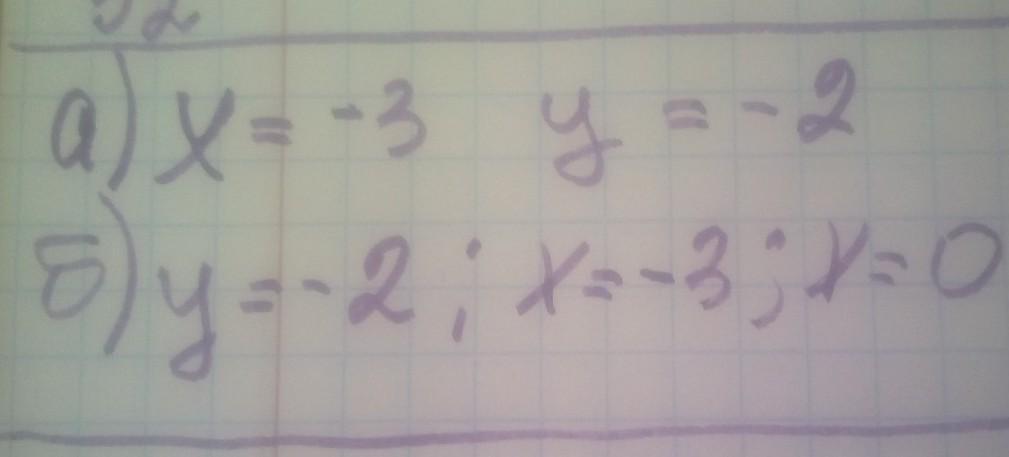 а) x = -3 y = -2
б) y = -2 ; x = -3 ; x = 0